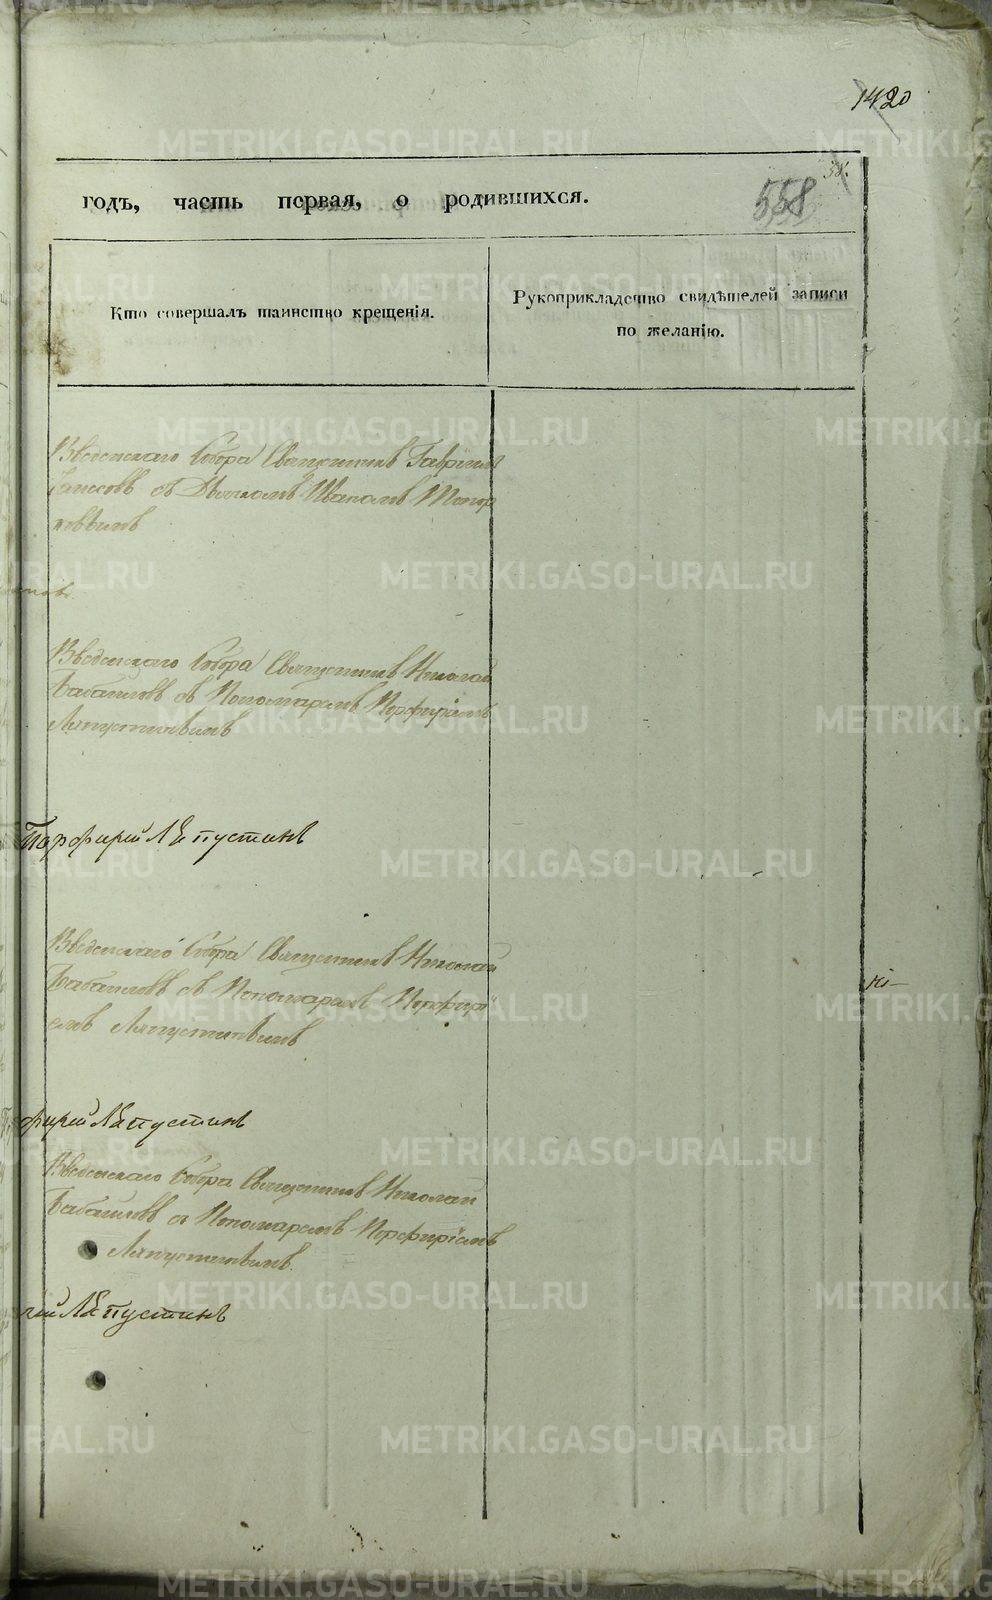 1420
38.
558
годъ, часть первая, о родившихся.
Кто совершалъ таинство крещенія.
Рукоприкладство свидѣтелей записи
по желанію.
Введенскаго Собора Священникъ Гавріилъ
съ Дьячкомъ Иваномъ Топор
ковымъ
Введенскаго Собора Священникъ Николай
Бабаиловъ съ Пономаремъ Порфиріемъ
Ляпустинымъ
Порфирий Ляпустинъ
Введенскаго Собора Священникъ Николай
Бабаиловъ съ Пономаремъ Порфирі
емъ Ляпустинымъ
фирий Ляпустинъ
Введенскаго Собора Священникъ Николай
Бабаиловъ съ Пономаремъ Порфиріемъ
Ляпустинымъ.
рий Ляпустинъ
METRIKI.GASO-URAL.RU